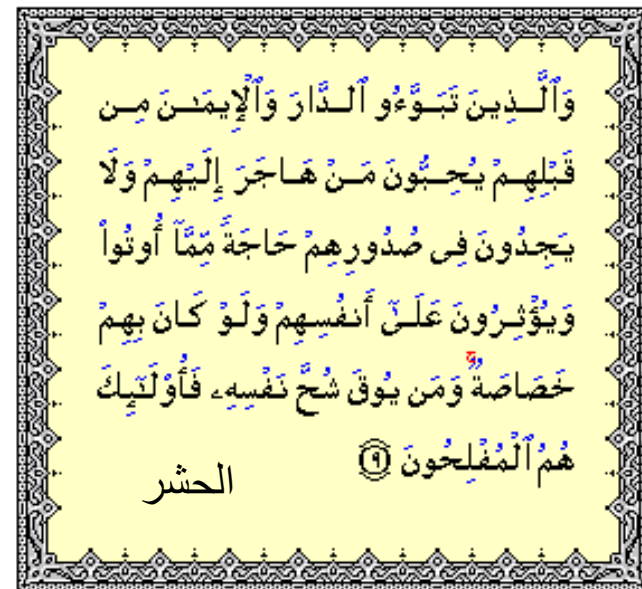 وَٱلَّذِينَ تَبَوَّءُو ٱلدَّارَ وَٱلْإِيمَـٰنَ مِن
قَبْلِهِمْ يُحِبُّونَ مَنْ هَاجَرَ إِلَيْهِمْ وَلَا
يَجِدُونَ فِى صُدُورِهِمْ حَاجَةً مِّمَّآ أُوتُوا۟
وَيُؤْثِرُونَ عَلَىٰٓ أَنفُسِهِمْ وَلَوْ كَانَ بِهِمْ
خَصَاصَةٌ ۚ وَمَن يُوقَ شُحَّ نَفْسِهِۦ فَأُو۟لَـٰٓئِكَ
هُمُ ٱلْمُفْلِحُونَ ٩
الحشر